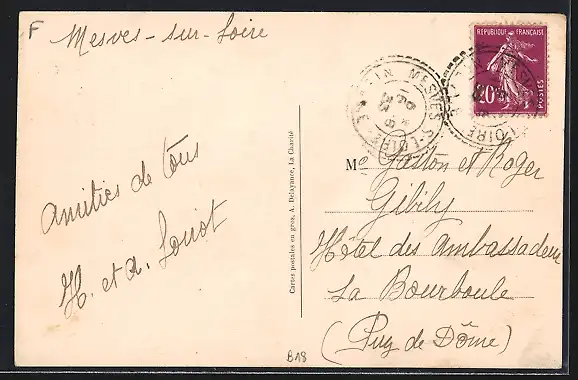 F Mesves-sur-Loire
REPUBLIQUE FRANÇAISE
20c
POSTES
MESVES-S-LOIRE
Amitiés de tous
H. et A. Loriot
Cartes postales en gros, A. Delayance, La Charité
M^e Gaston et Roger
Gibily
Hôtel des Ambassadeurs
La Bourboule
(Puy de Dôme)
B18